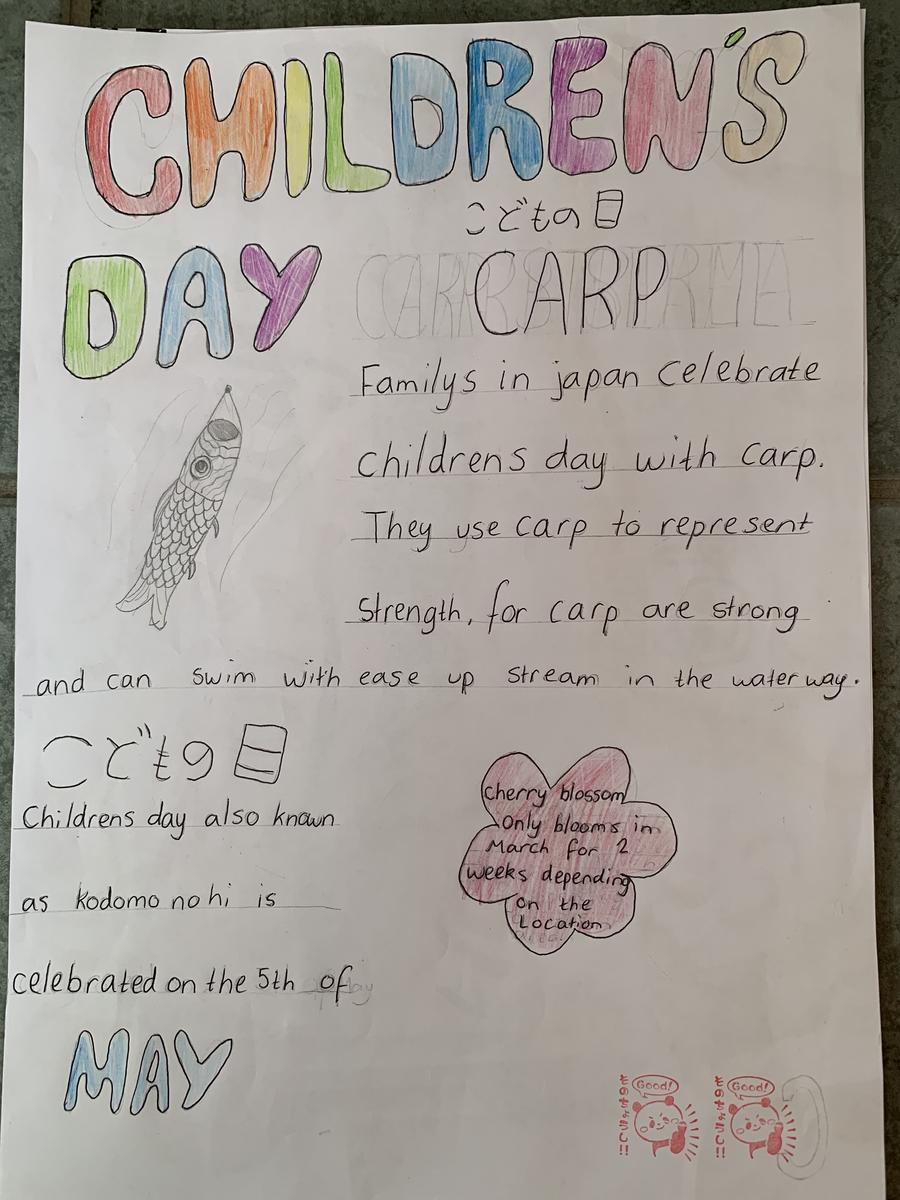 CHILDREN'S
こどもの日
DAY
CARP
Familys in japan celebrate
childrens day with carp.
They use carp to represent
strength, for carp are strong
and can swim with ease up stream in the water way.
こどもの日
Childrens day also known
as kodomo no hi is
celebrated on the 5th of
MAY
Cherry blossom
only blooms in
March for 2
weeks depending
on the
Location
Good!
Good!